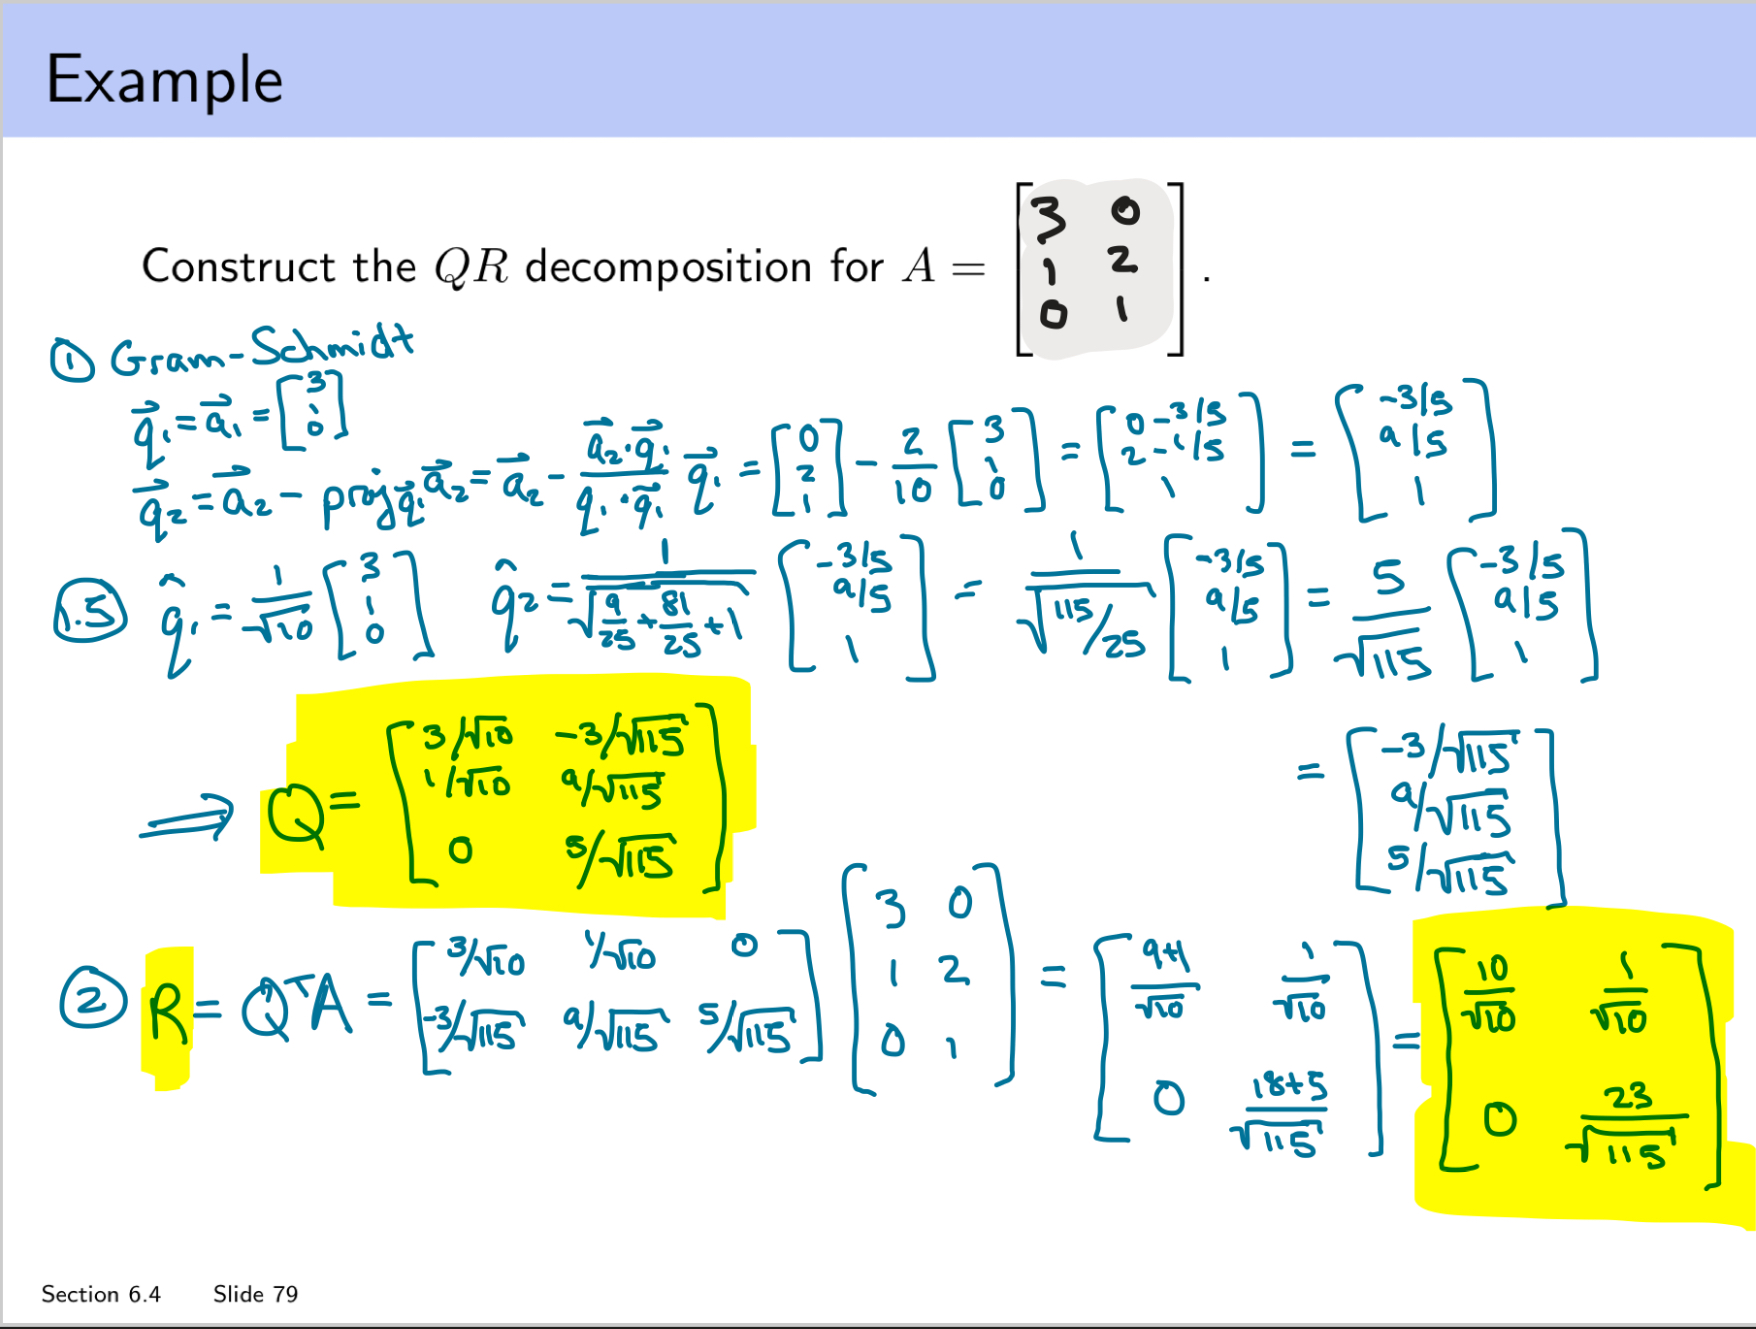 Example
Construct the QR decomposition for A = [3 0; 1 2; 0 1].
① Gram-Schmidt
q⃗₁ = a⃗₁ = [3; 1; 0]
q⃗₂ = a⃗₂ - proj_q⃗₁ a⃗₂ = a⃗₂ - (a⃗₂·q⃗₁)/(q⃗₁·q⃗₁) q⃗₁ = [0; 2; 1] - 2/10 [3; 1; 0] = [0-3/5; 2-1/5; 1] = [-3/5; 9/5; 1]
1.5 q̂₁ = 1/√10 [3; 1; 0] q̂₂ = 1/√(9/25 + 81/25 + 1) [-3/5; 9/5; 1] = 1/√(115/25) [-3/5; 9/5; 1] = 5/√115 [-3/5; 9/5; 1]
= [-3/√115; 9/√115; 5/√115]
⟹ Q = [3/√10 -3/√115; 1/√10 9/√115; 0 5/√115]
② R = QᵀA = [3/√10 1/√10 0; -3/√115 9/√115 5/√115] [3 0; 1 2; 0 1] = [(9+1)/√10 1/√10; 0 (18+5)/√115] = [10/√10 1/√10; 0 23/√115]
Section 6.4 Slide 79